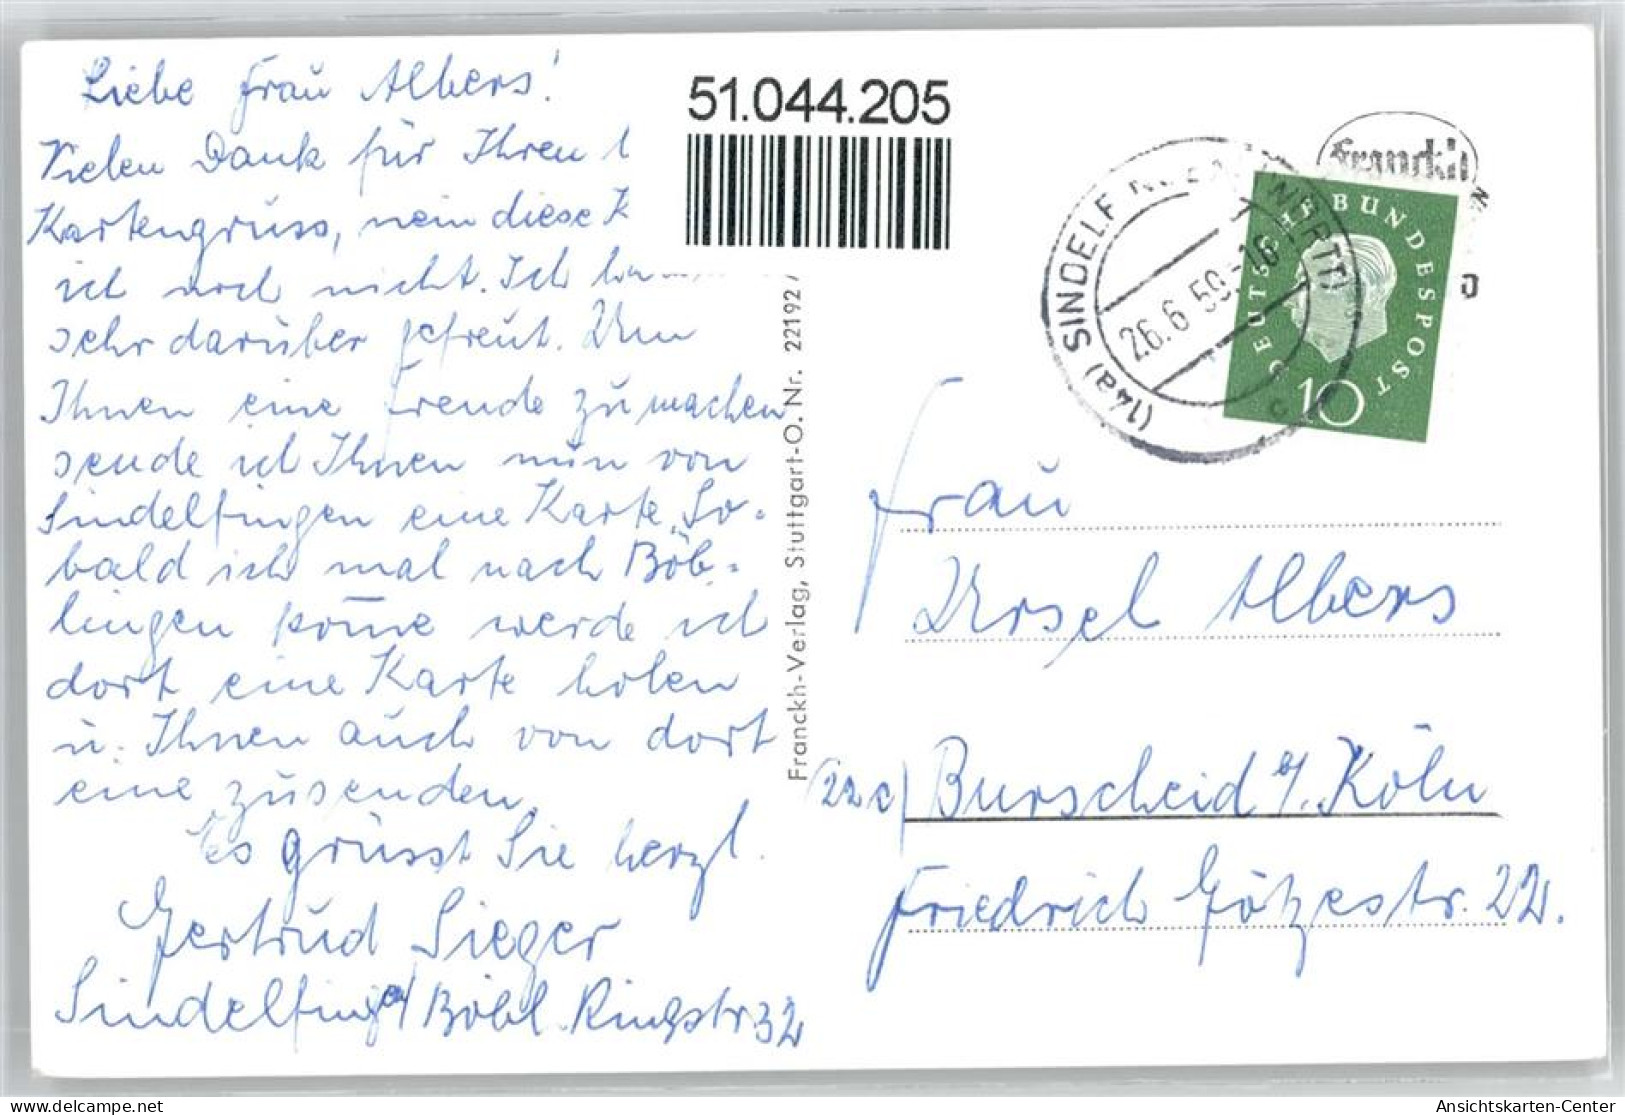 Liebe Frau Albers!
Vielen Dank für Ihren
Kartengruss, nein diese K
ich noch nicht. Ich
sehr darüber gefreut. Um
Ihnen eine Freude zu machen
sende ich Ihnen nun von
Sindelfingen eine Karte. So-
bald ich mal nach Böb-
lingen kom̄e werde ich
dort eine Karte holen
u. Ihnen auch von dort
eine zusenden.
Es grüsst Sie herzl.
Gertrud Sieger
Sindelfingen/Böbl. Ringstr 32
51.044.205
Franckh-Verlag, Stuttgart-O. Nr. 22192/
(14a) SINDELF (WÜRTT)
26.6.59.-16
c
Franckh
DEUTSCHE BUNDESPOST
10
Frau
Ursel Albers
(22c) Burscheid b/. Köln
Friedrich Götzestr. 22.
Ansichtskarten-Center